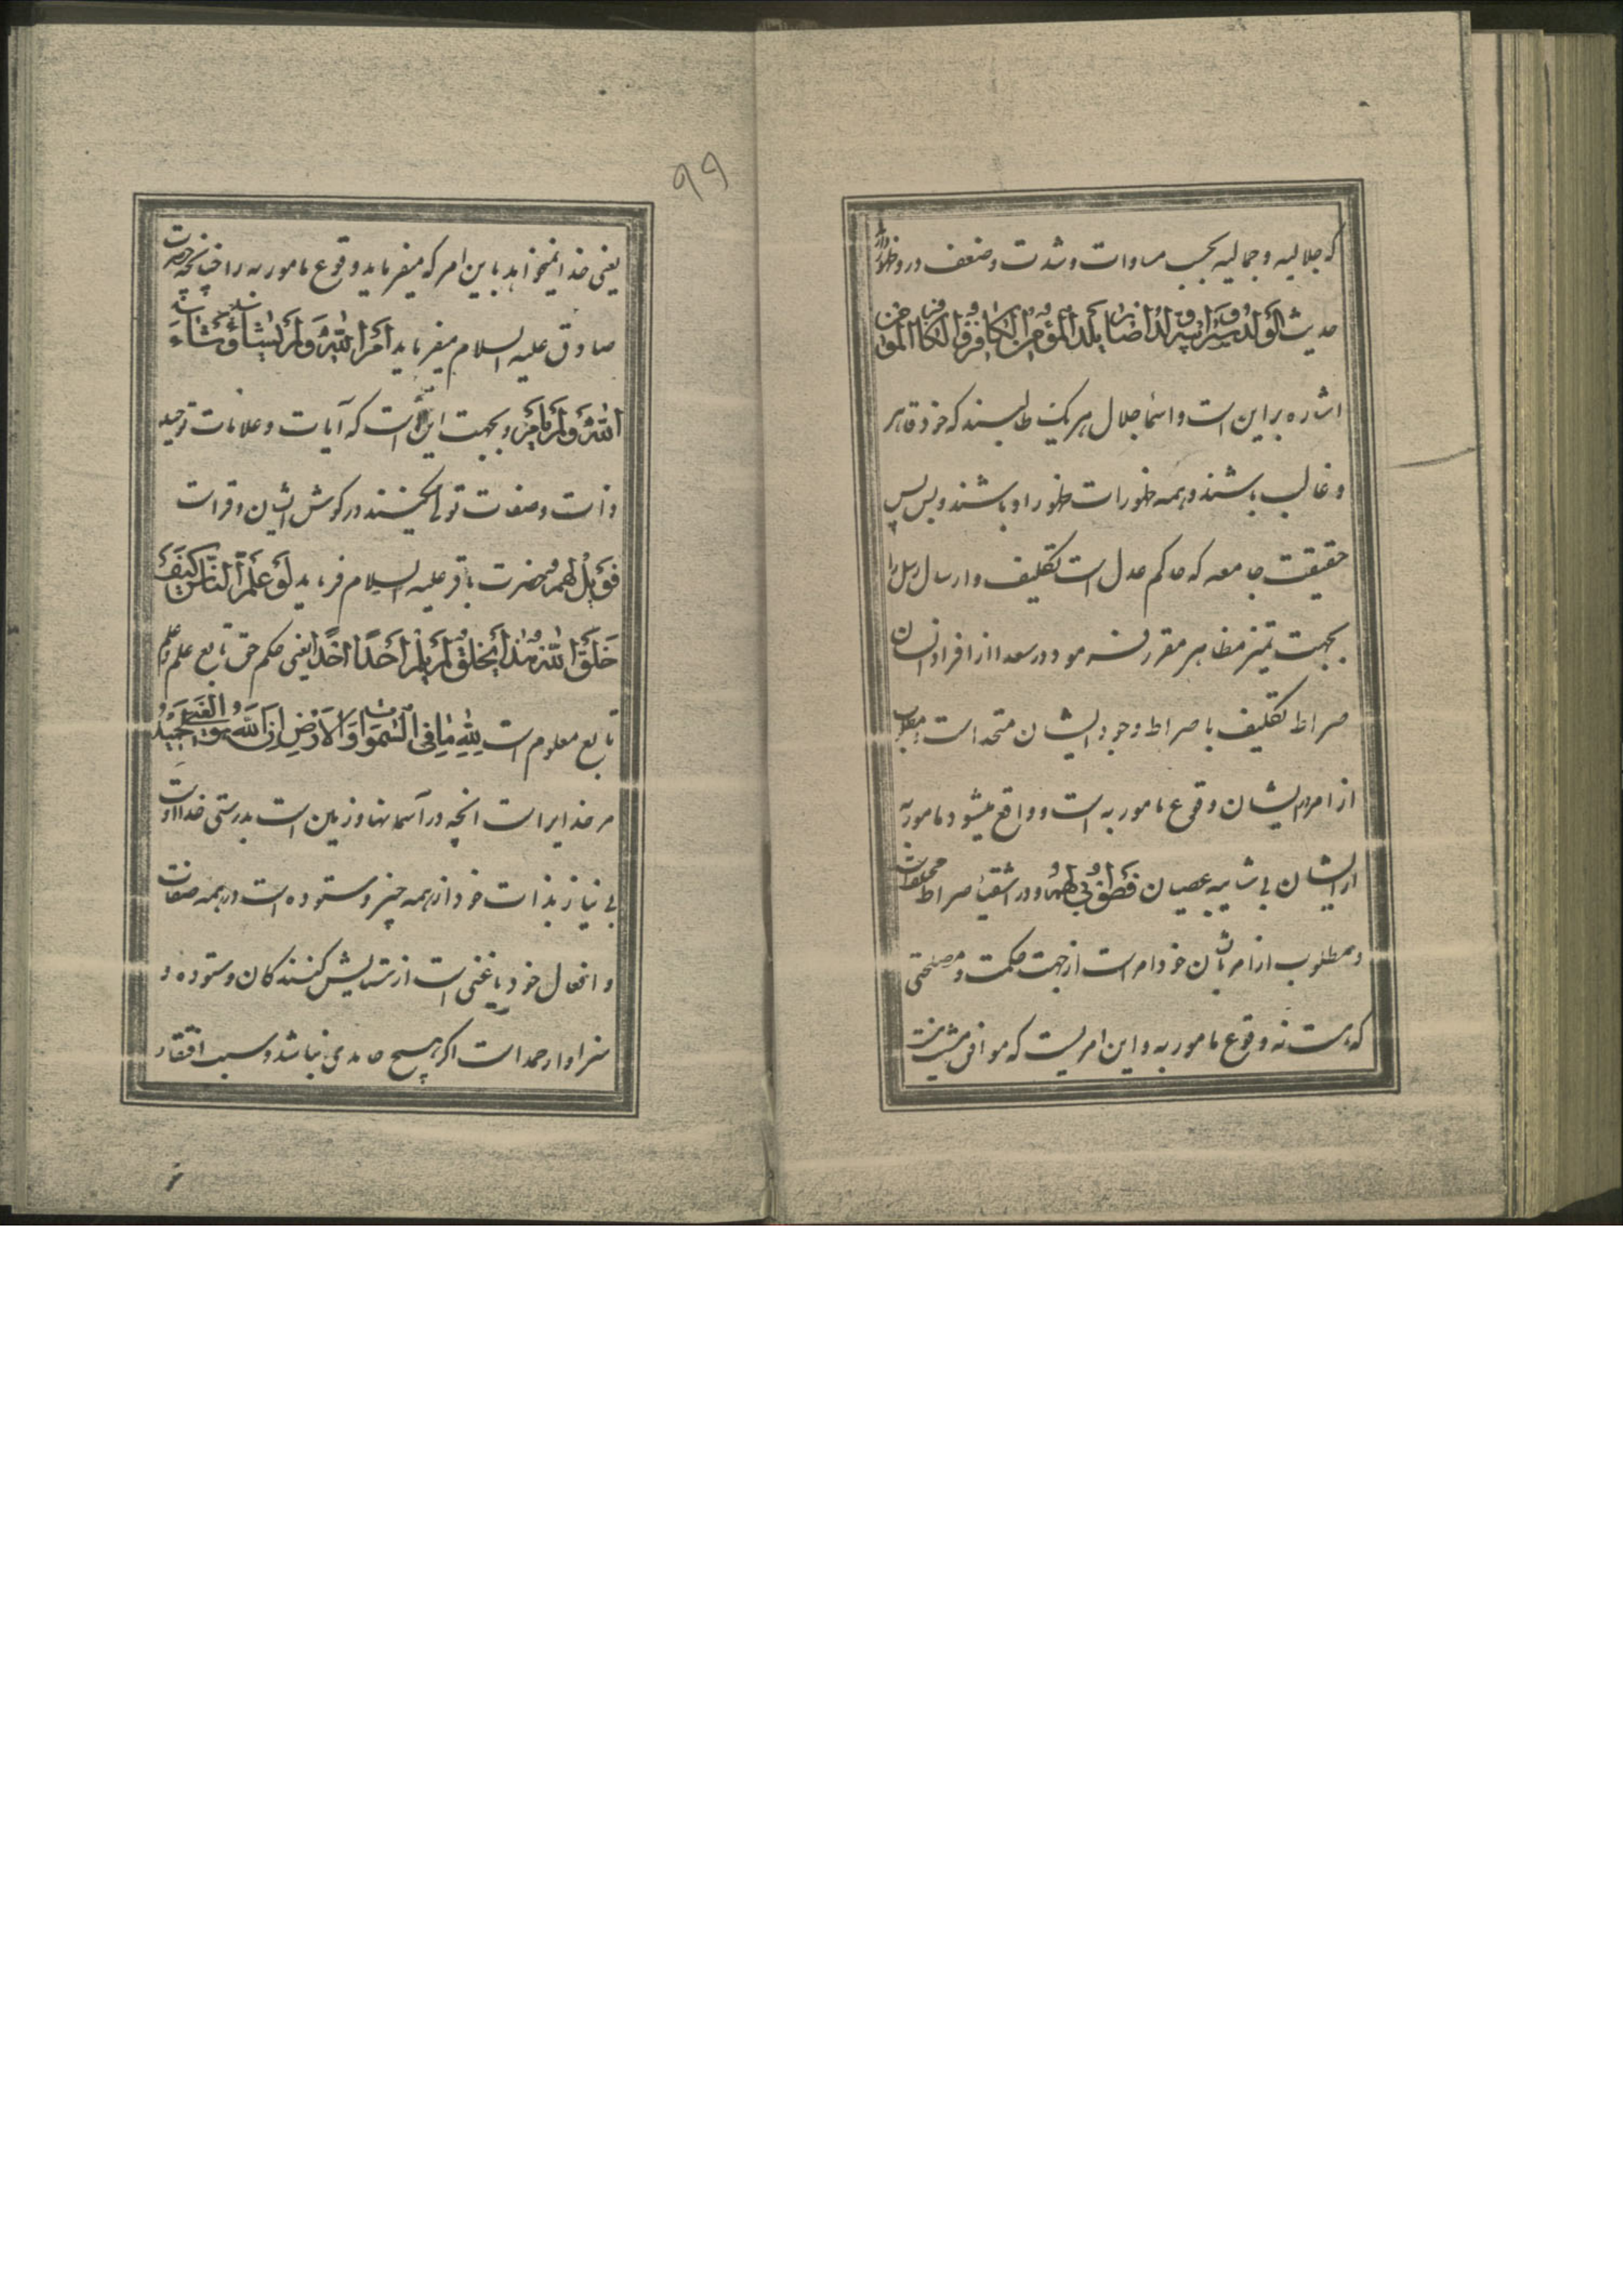 که جلالیه و جمالیه بحسب مساوات و شدت و ضعف در و ظهور دارد
حدیث الولد سر ابیه و ایضا یلد المؤمن الکافر و الکافر المؤمن
اشاره بر این است و اسماء جلال هر یک طالبند که خود قاهر
و غالب باشند و همه ظهورات ظهور او باشند و بس پس
حقیقت جامعه که حاکم عدل است تکلیف و ارسال رسل را
بجهت تمیز مظاهر مقرر فرمود و در سعدا از افراد انسان
صراط تکلیف با صراط وجود ایشان متحد است مطلوب
از امر ایشان وقوع مامور به است و واقع میشود مامور به
از ایشان بی شایبه عصیان فطوبی لهم و در اشقیا صراط مختلف است
و مطلوب از امر باشان خود امر است از جهت حکمت و مصلحتی
که هست نه وقوع مامور به و این امریست که موافق مشیت نیست
۹۹
یعنی خدا نمیخواهد باین امر که میفرماید وقوع مامور به را چنانچه حضرت
صادق علیه السلام میفرماید امر الله و لم یشاء و شاء
الله و لم یامر و بجهت این است که آیات و علامات توحید
ذات و صفات تو نمیکنند در کوش ایشان وقرات
فویل لهم حضرت باقر علیه السلام فرماید لو علم الناس کیف
خلق الله هذا الخلق لم یلم احد احدا یعنی حکم حق تابع علم و علم
تابع معلوم است لله ما فی السموات و الارض ان الله هو الغنی الحمید
مر خدایراست انچه در آسمانها و زمین است بدرستی خدا اوست
بی نیاز بذات خود از همه چیز و ستوده است در همه صفات
و افعال خود یا غنی است از ستایش کنندکان و ستوده و
سزاوار حمد است اکر هیچ حامدی نباشد و سبب افتقار